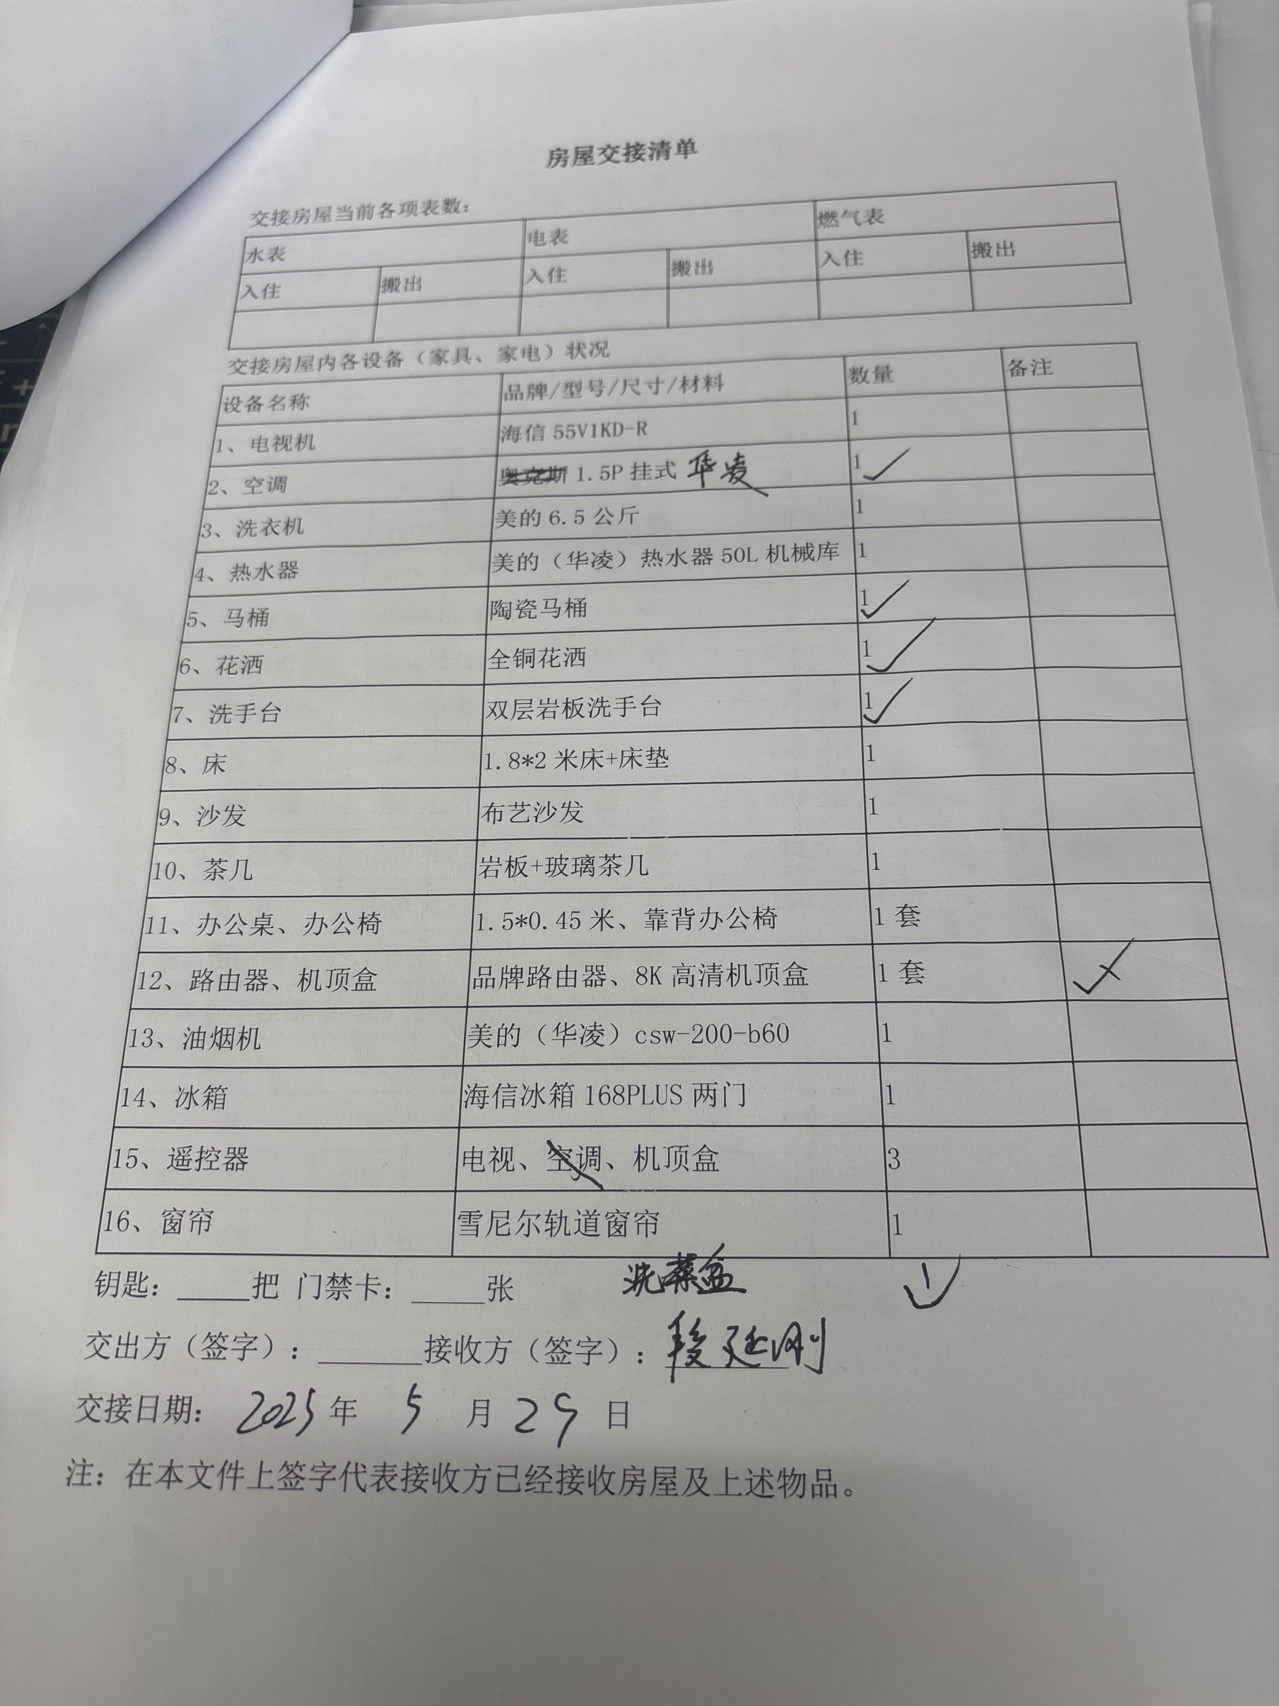 房屋交接清单
交接房屋当前各项表数：
水表 电表 燃气表
入住 搬出 入住 搬出 入住 搬出
交接房屋内各设备（家具、家电）状况
设备名称 品牌/型号/尺寸/材料 数量 备注
1、电视机 海信 55V1KD-R 1
2、空调 奥克斯 1.5P 挂式 华凌 1 ✓
3、洗衣机 美的 6.5 公斤 1
4、热水器 美的（华凌）热水器 50L 机械库 1
5、马桶 陶瓷马桶 1 ✓
6、花洒 全铜花洒 1 ✓
7、洗手台 双层岩板洗手台 1 ✓
8、床 1.8*2 米床+床垫 1
9、沙发 布艺沙发 1
10、茶几 岩板+玻璃茶几 1
11、办公桌、办公椅 1.5*0.45 米、靠背办公椅 1 套
12、路由器、机顶盒 品牌路由器、8K 高清机顶盒 1 套
13、油烟机 美的（华凌）csw-200-b60 1
14、冰箱 海信冰箱 168PLUS 两门 1
15、遥控器 电视、空调、机顶盒 3
16、窗帘 雪尼尔轨道窗帘 1
钥匙：_____把 门禁卡：_____张 洗菜盆 1 ✓
交出方（签字）：_______接收方（签字）：段延刚
交接日期： 2025 年 5 月 29 日
注：在本文件上签字代表接收方已经接收房屋及上述物品。